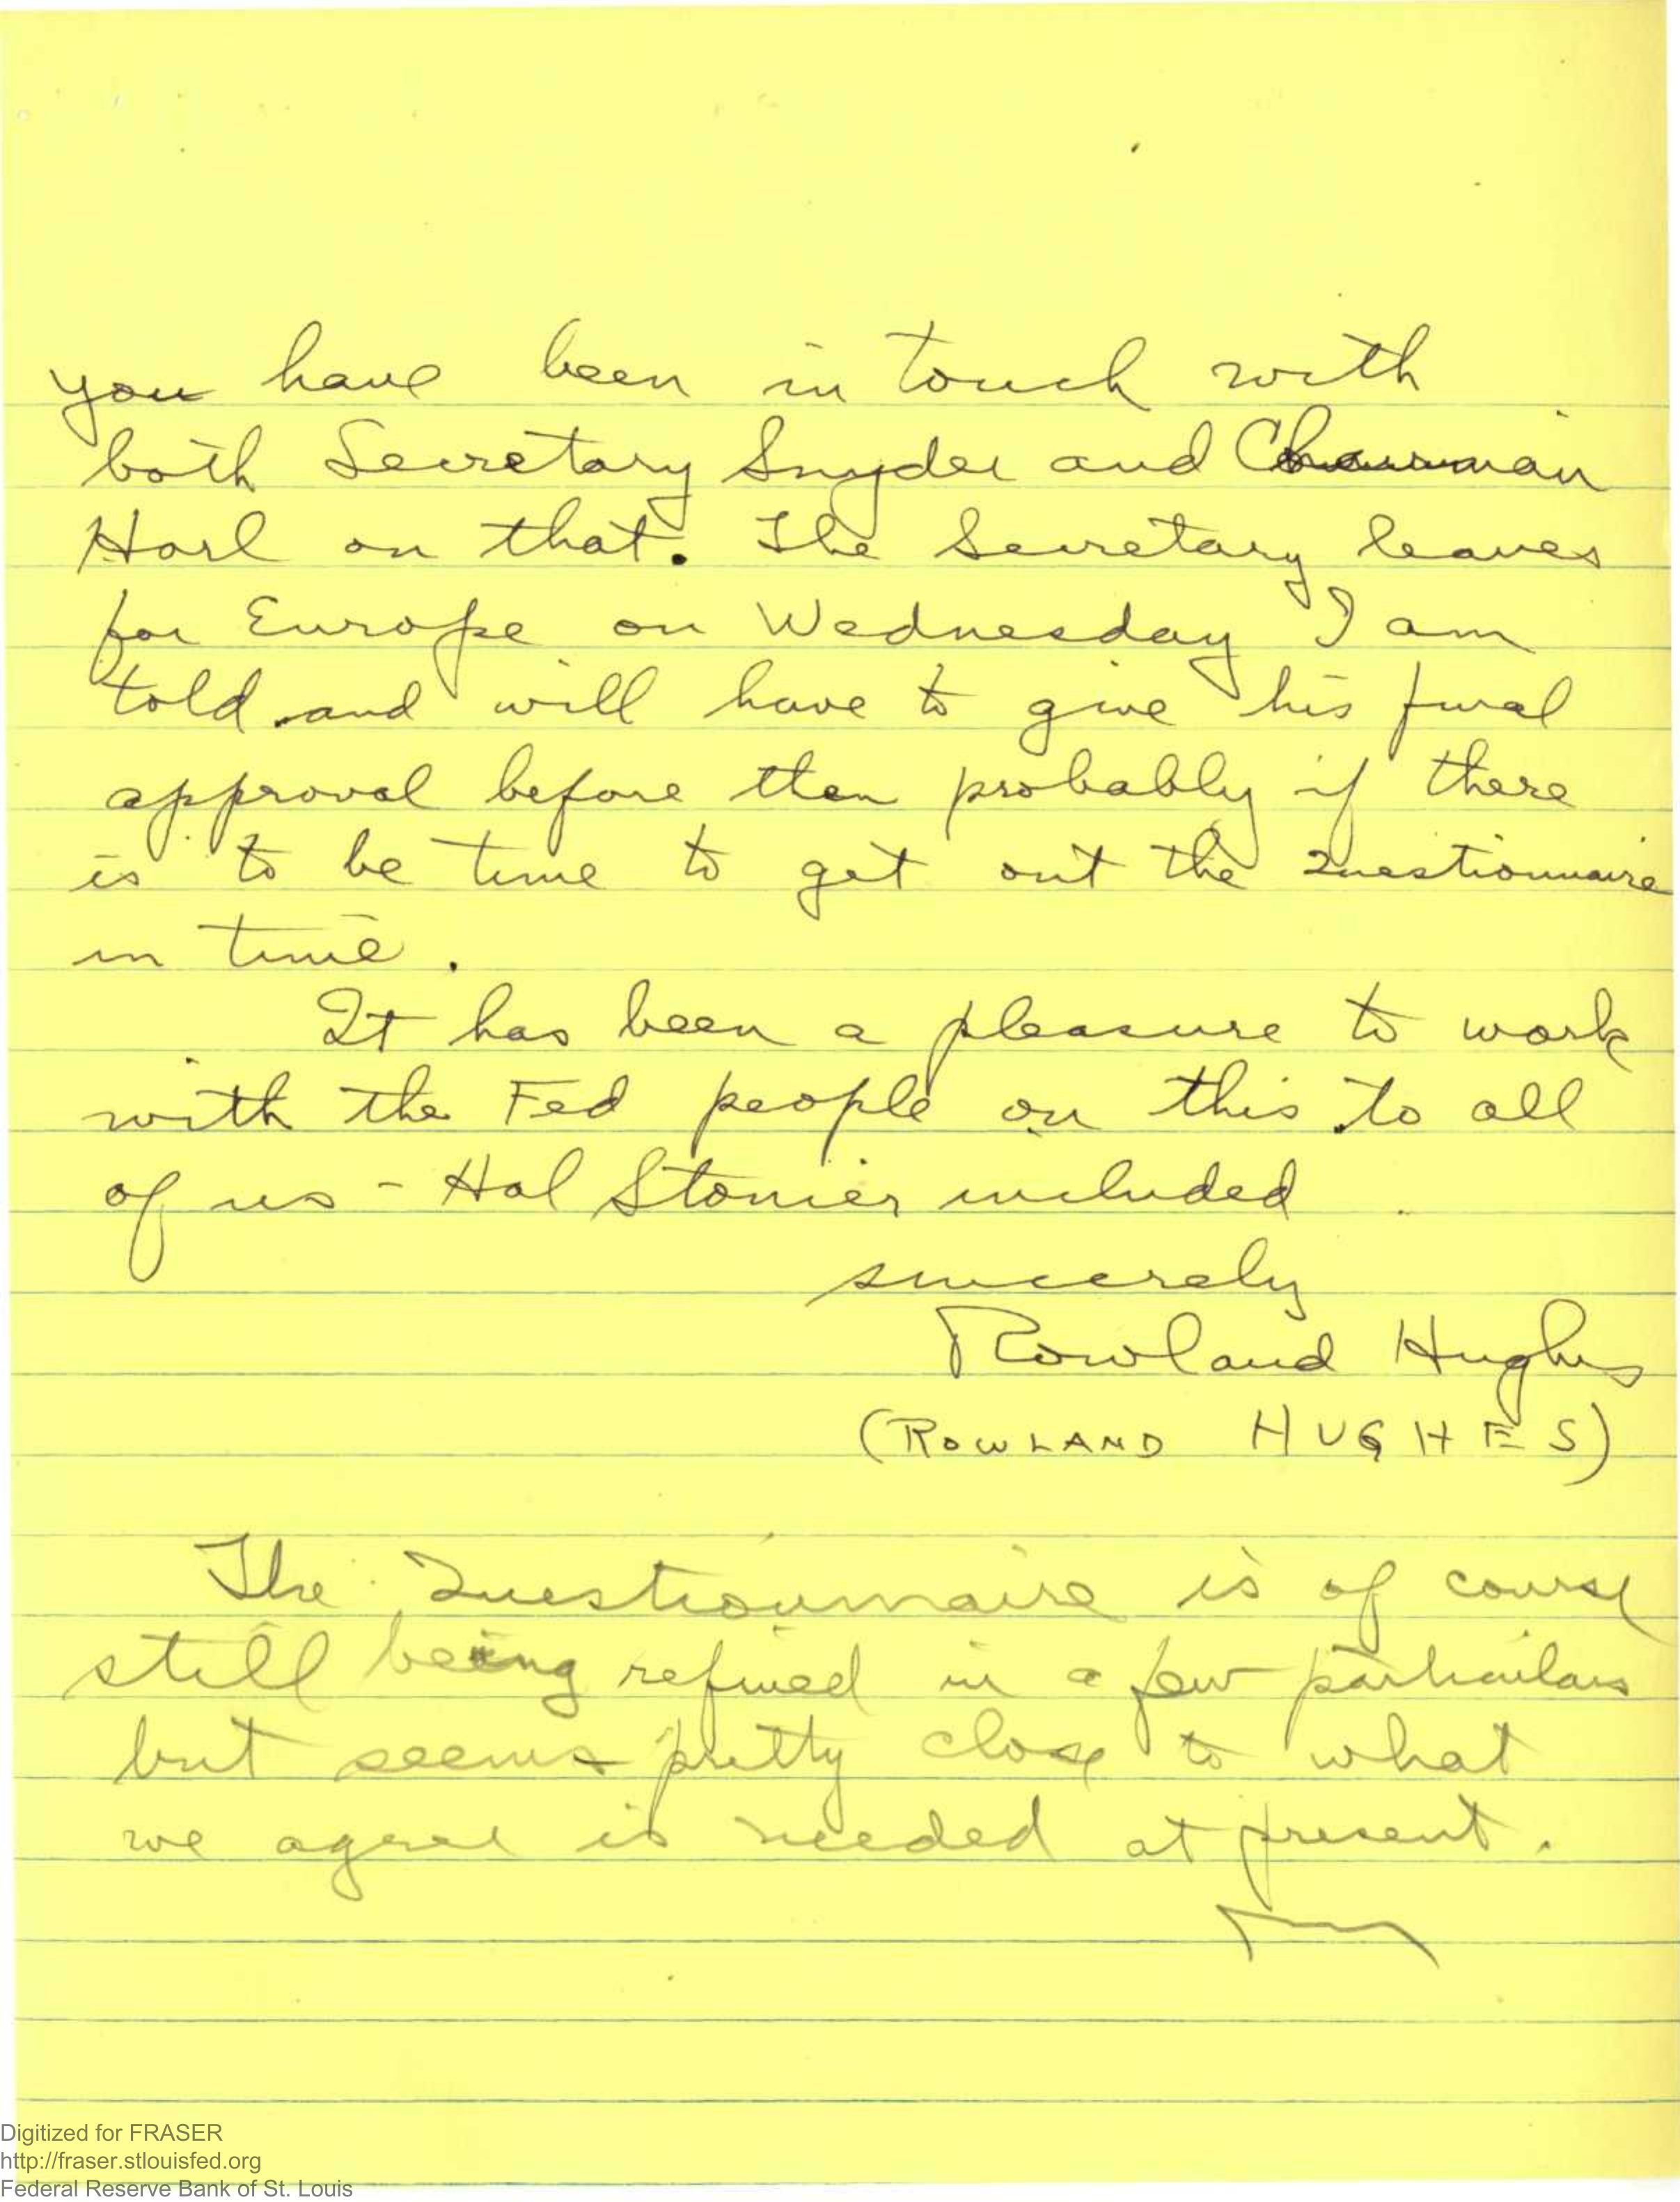 you have been in touch with
both Secretary Snyder and Chairman
Harl on that. The Secretary leaves
for Europe on Wednesday I am
told and will have to give his final
approval before then probably if there
is to be time to get out the Questionnaire
in time.
It has been a pleasure to work
with the Fed people on this to all
of us - Hal Stonier included.
sincerely
Rowland Hughes
(ROWLAND HUGHES)
The Questionnaire is of course
still being refined in a few particulars
but seems pretty close to what
we agree is needed at present.
Digitized for FRASER
http://fraser.stlouisfed.org
Federal Reserve Bank of St. Louis